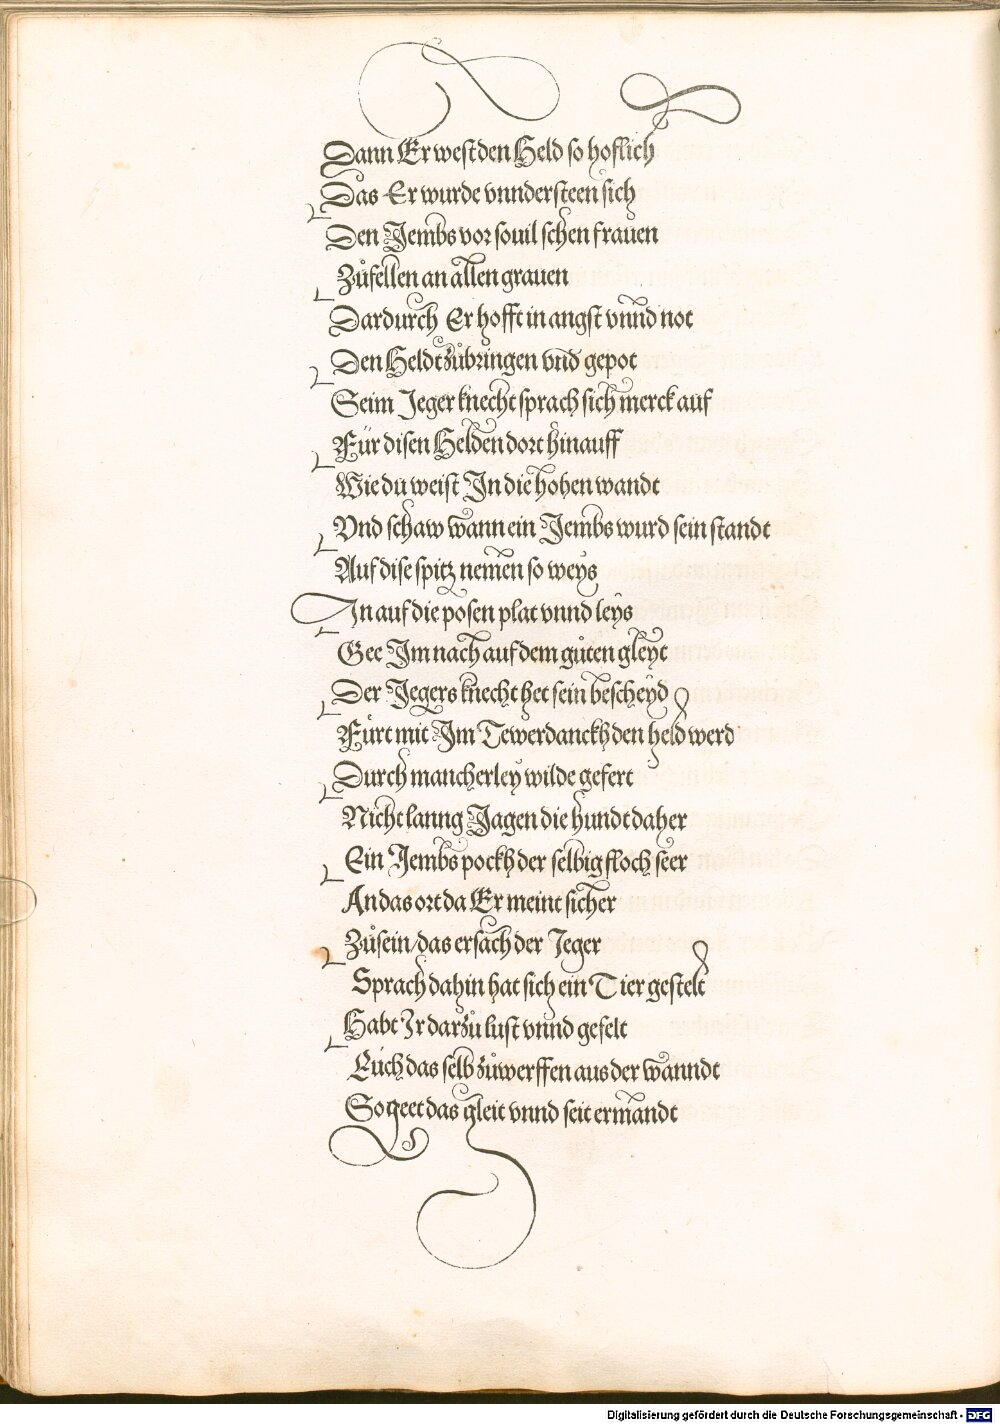 Dann Er west den Held so hoflich
Das Er wurde vnndersteen sich
Den Jembs vor souil schen frauen
Zůfellen an allen grauen
Dardurch Er hofft in angst vnnd not
Den Heldt zůbringen vnd gepot
Seim Jeger knecht sprach sich merck auf
Für disen Helden dort hinauff
Wie du weist In die hohen wandt
Vnd schaw wann ein Jembs wurd sein standt
Auf dise spitz nemen so weys
In auf die posen plat vnnd leys
Gee Im nach auf dem gůten gleyt
Der Jegers knecht het sein bescheyd
Fürt mit Im Tewerdanckh den held werd
Durch mancherley wilde gefert
Nicht lanng Jagen die hundt daher
Ein Jembs pockh der selbig floch seer
An das ort da Er meint sicher
Zůsein/das ersach der Jeger
Sprach dahin hat sich ein Tier gestelt
Habt Ir darzů lust vnnd gefelt
Euch das selb zůwerffen aus der wanndt
So geet das gleit vnnd seit ermandt
Digitalisierung gefördert durch die Deutsche Forschungsgemeinschaft - DFG